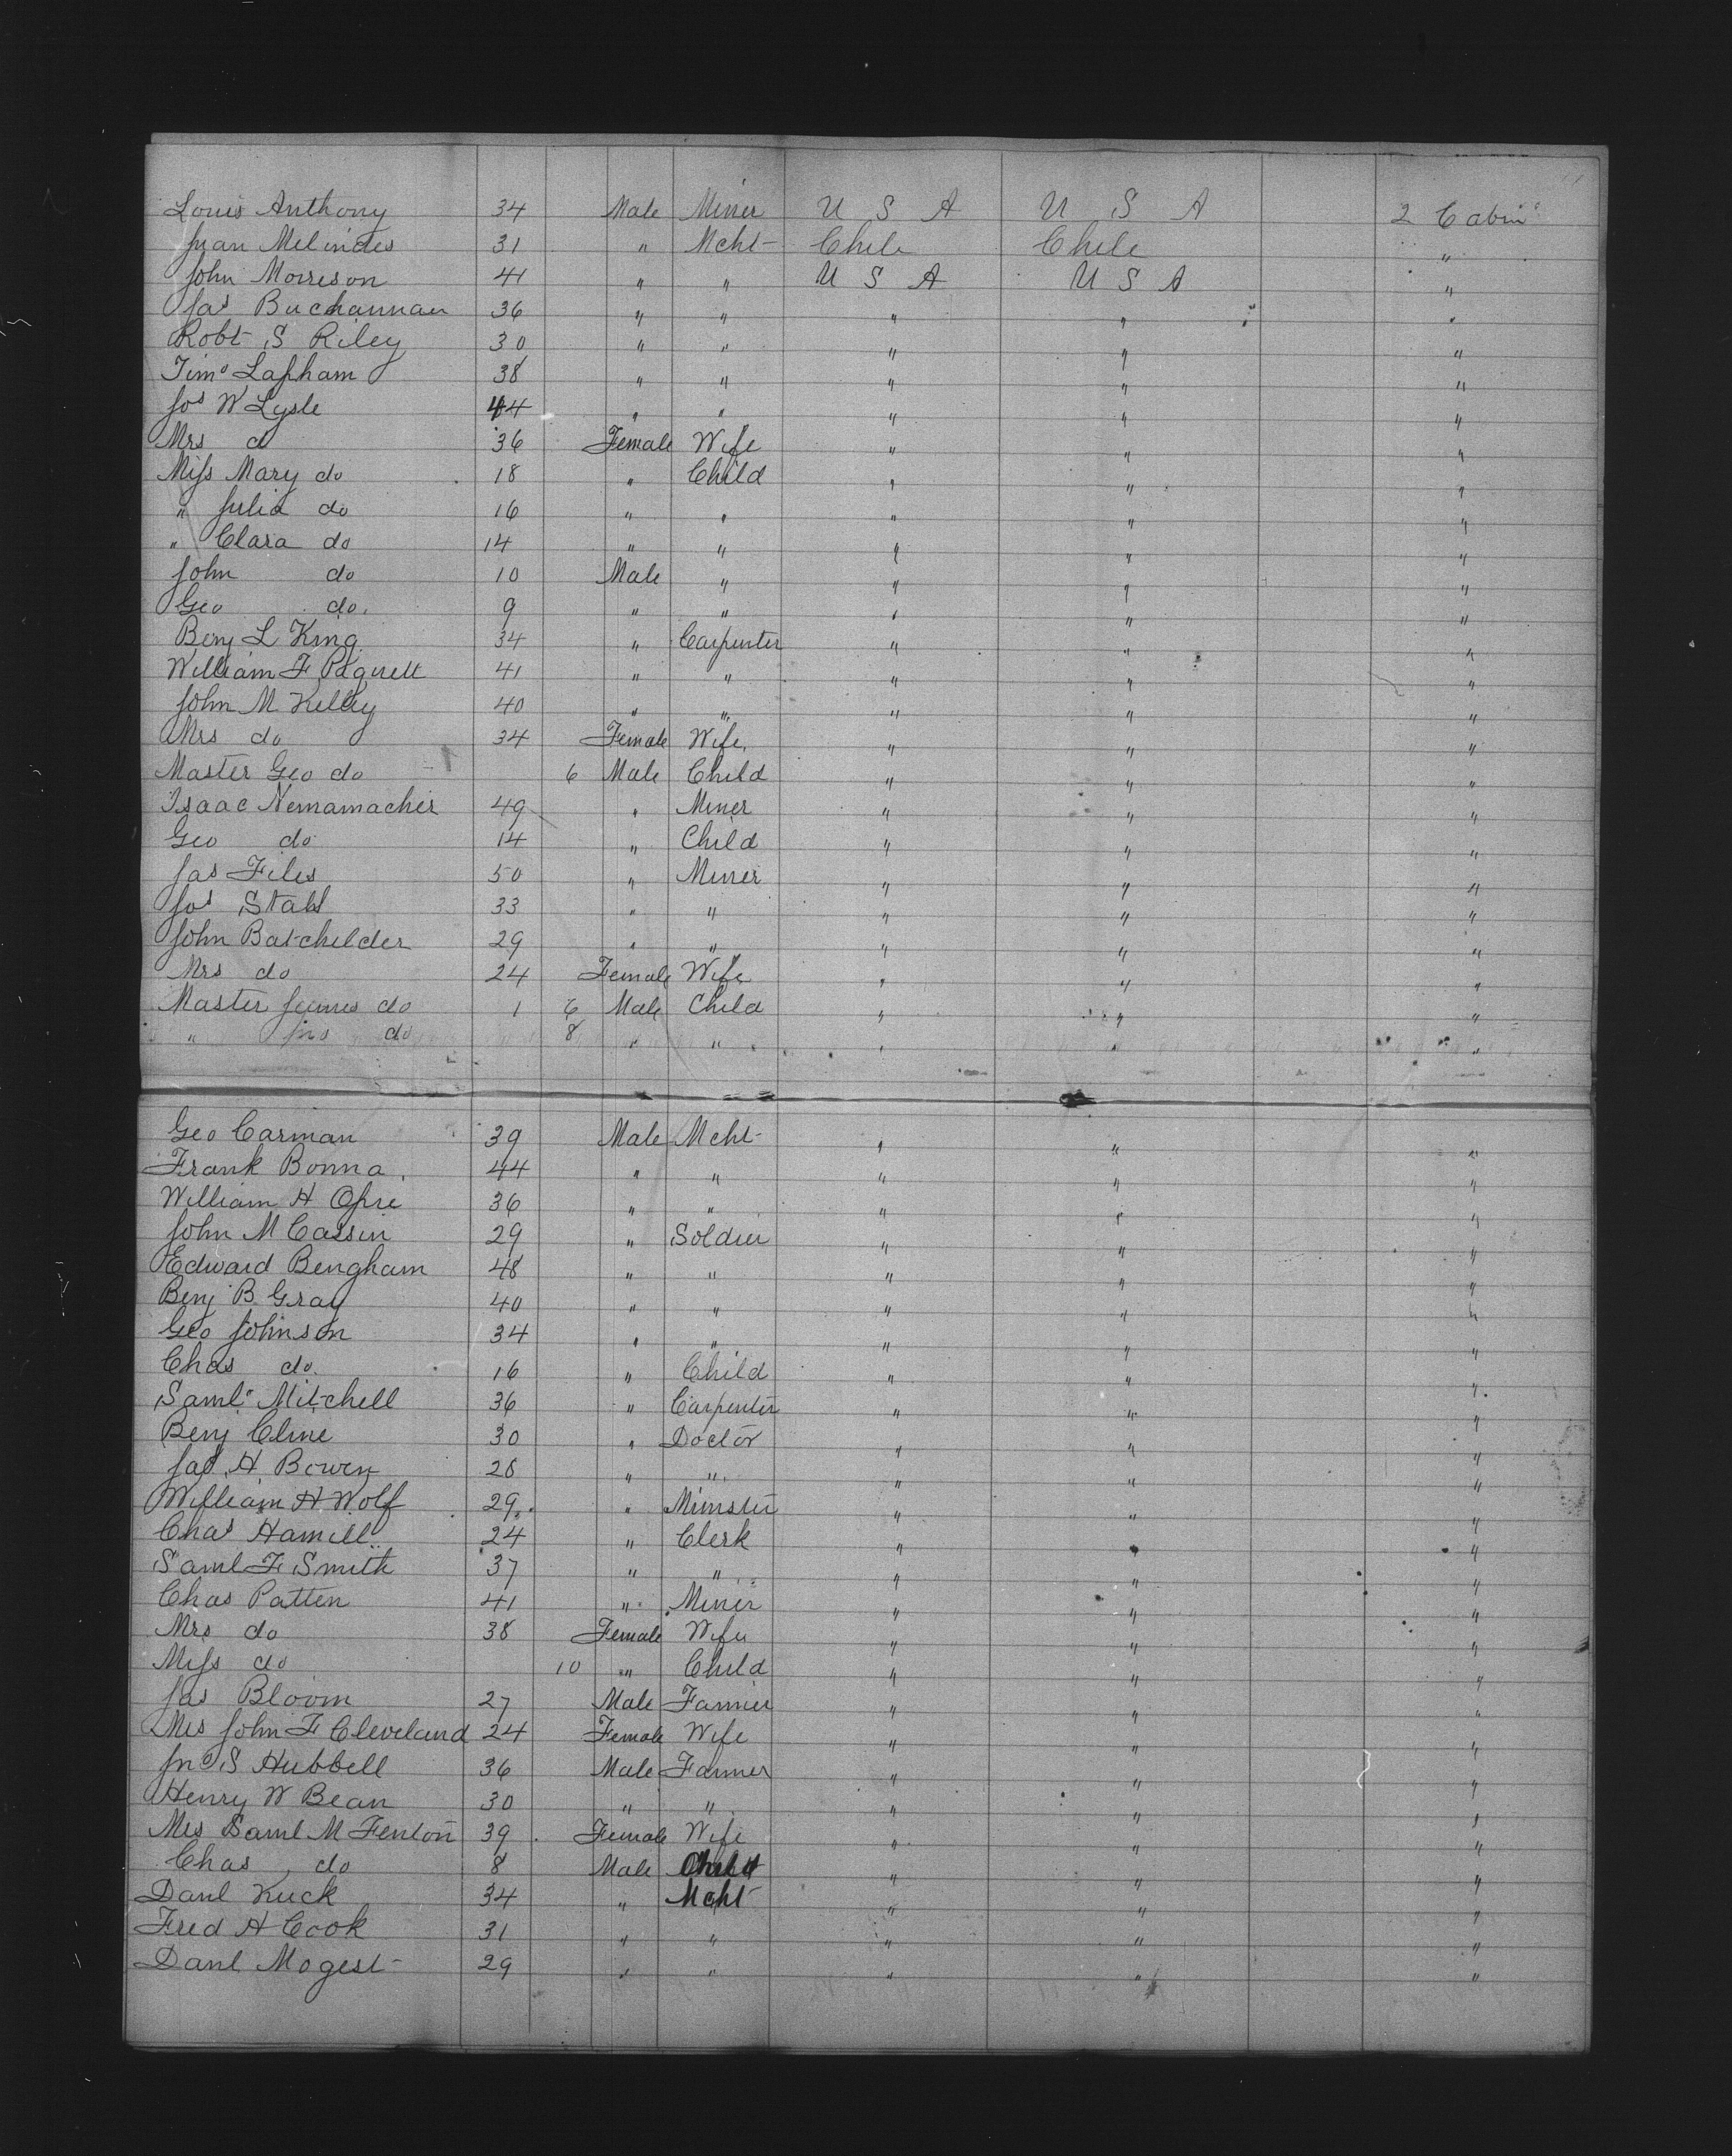 Louis Anthony 34 Male Miner U S A U S A 2 Cabin
Juan Melindes 31 " Mcht Chile Chile "
John Morrison 41 " " U S A U S A "
Jas Buchannan 36 " " " " "
Robt S Riley 30 " " " " "
Timo Lapham 38 " " " " "
Jos W Lysle 44 " " " " "
Mrs do 36 Female Wife " " "
Miss Mary do 18 " Child " " "
" Julia do 16 " " " " "
" Clara do 14 " " " " "
John do 10 Male " " " "
Geo do. 9 " " " " "
Benj L King 34 " Carpenter " " "
William F Pagnett 41 " " " " "
John M Kelley 40 " " " " "
Mrs do 34 Female Wife " " "
Master Geo do 6 Male Child " " "
Isaac Nemamacher 49 " Miner " " "
Geo do 14 " Child " " "
Jas Files 50 " Miner " " "
Jos Stahl 33 " " " " "
John Batchelder 29 " " " " "
Mrs do 24 Female Wife " " "
Master James do 1 6 Male Child " " "
" Jno do 8 " " " " "
Geo Carman 39 Male Mcht " " "
Frank Bonna 44 " " " " "
William H Opie 36 " " " " "
John M Cassin 29 " Soldier " " "
Edward Bengham 48 " " " " "
Benj B Gray 40 " " " " "
Geo Johnson 34 " " " " "
Chas do 16 " Child " " "
Saml Mitchell 36 " Carpenter " " "
Benj Cline 30 " Doctor " " "
Jas H Bowen 28 " " " " "
William H Wolf 29 " Minster " " "
Chas Hamill 24 " Clerk " " "
Saml F Smith 37 " " " " "
Chas Patten 41 " Miner " " "
Mrs do 38 Female Wife " " "
Miss do 10 " Child " " "
Jas Bloom 27 Male Farmer " " "
Mrs John F Cleveland 24 Female Wife " " "
Jno S Hubbell 36 Male Farmer " " "
Henry W Bean 30 " " " " "
Mrs Saml M Fenton 39 Female Wife " " "
Chas do 8 Male Child " " "
Danl Kuck 34 " Mcht " " "
Fred A Cook 31 " " " " "
Danl Mogest 29 " " " " "